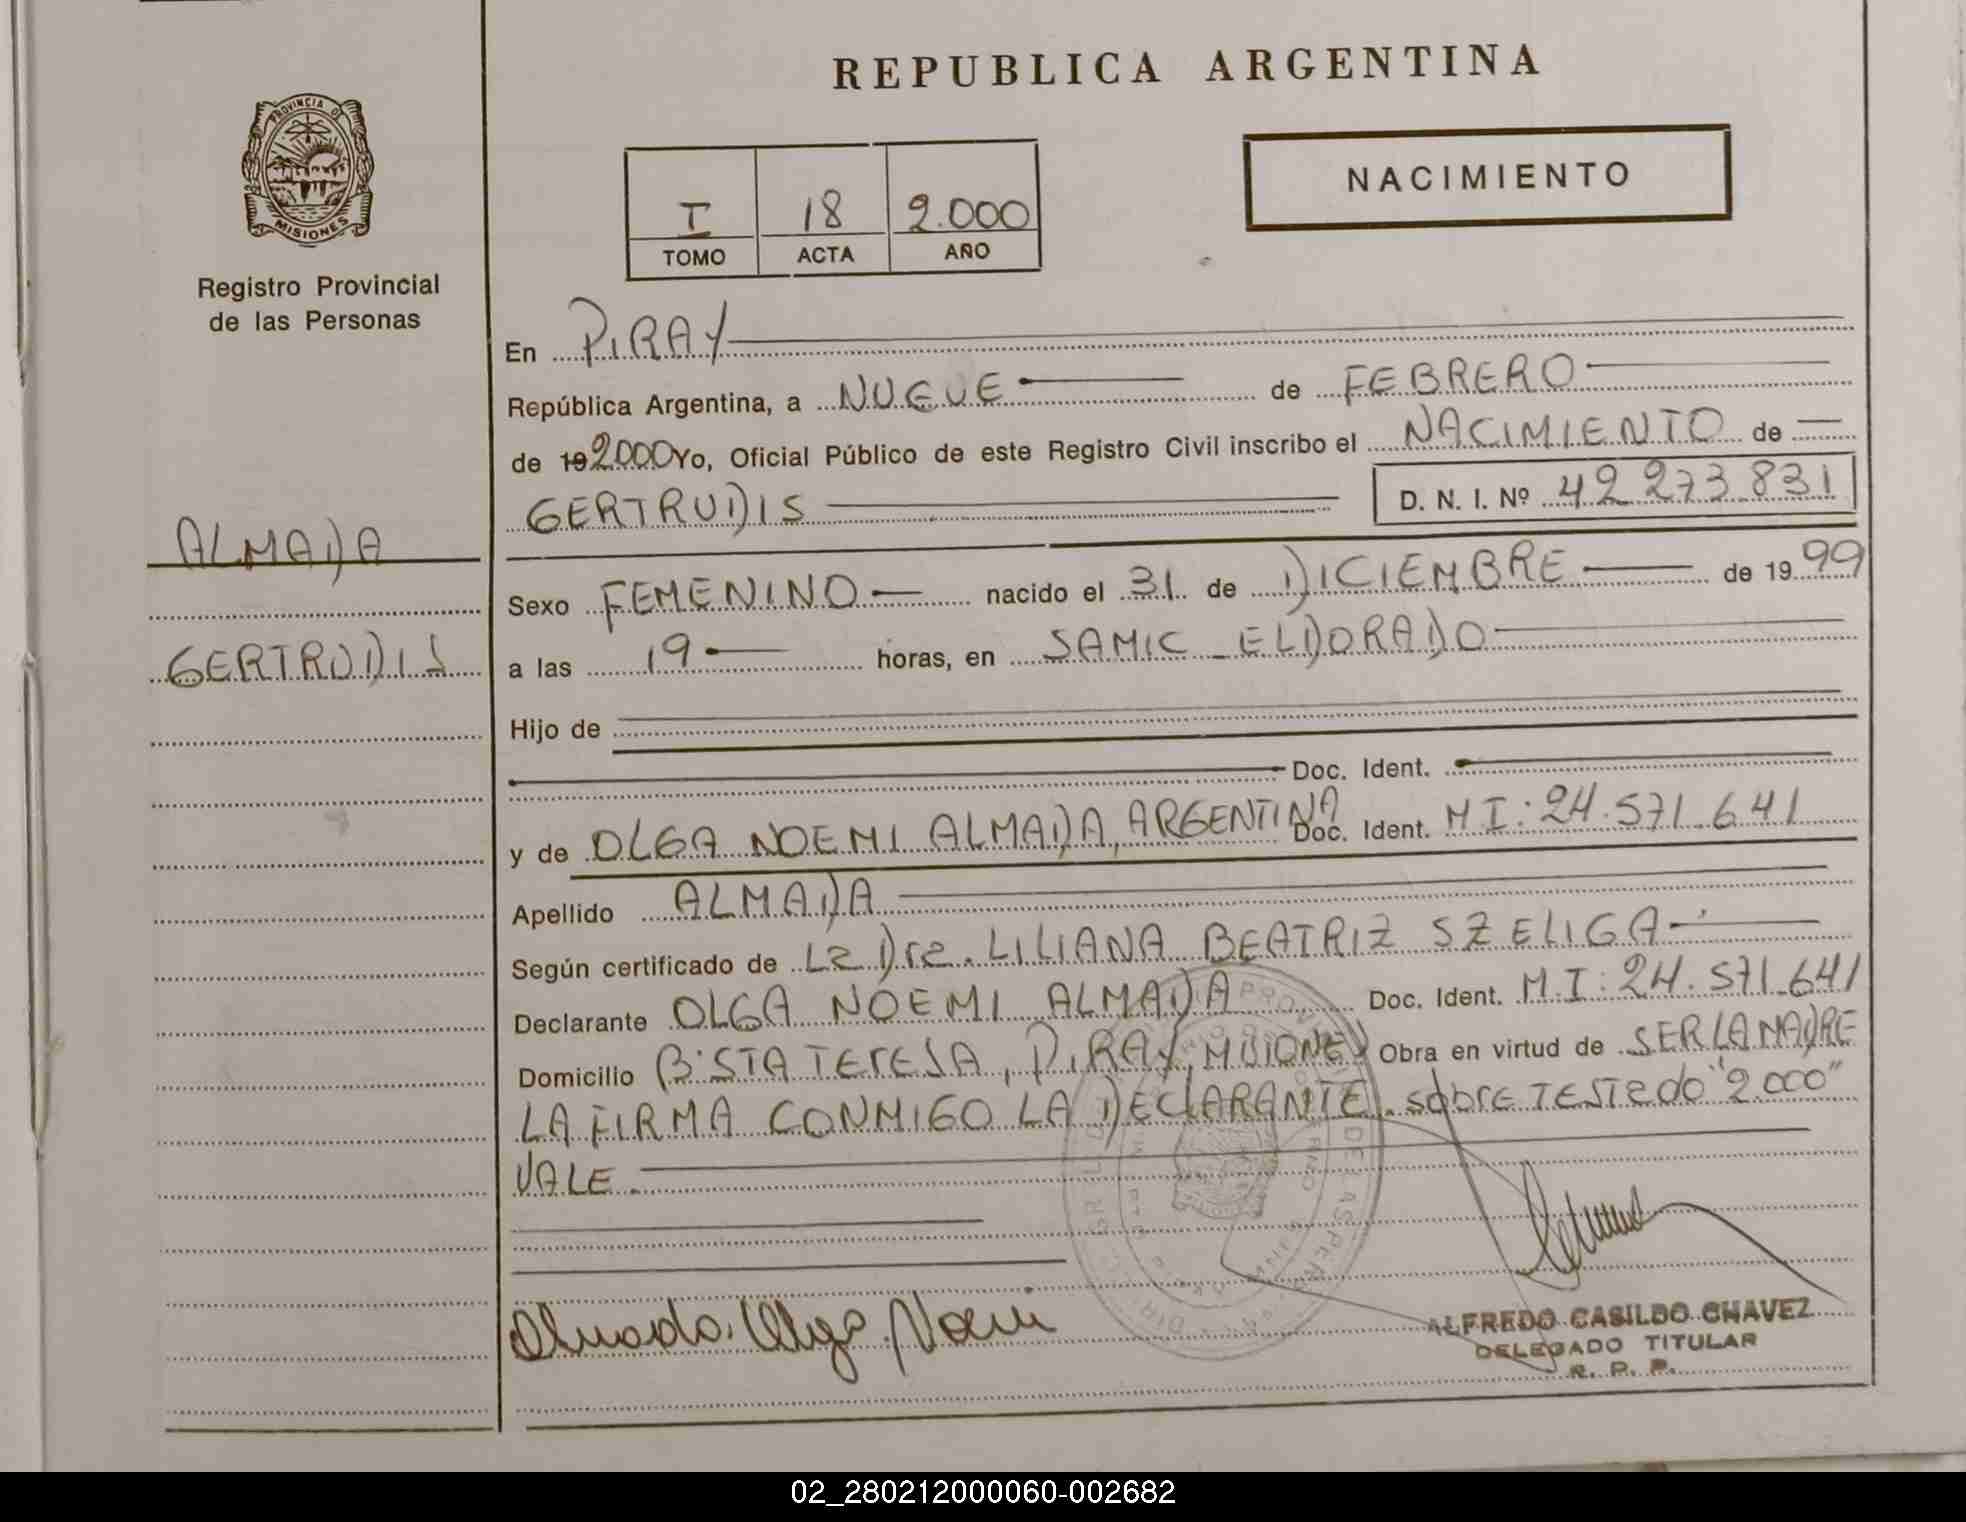 REPUBLICA ARGENTINA
PROVINCIA DE
MISIONES
Registro Provincial
de las Personas
I 18 2.000
TOMO ACTA AÑO
NACIMIENTO
En PIRAY
República Argentina, a NUEVE de FEBRERO
de 19 2000 Yo, Oficial Público de este Registro Civil inscribo el NACIMIENTO de
GERTRUDIS D. N. I. Nº 42 273 831
ALMADA
GERTRUDIS
Sexo FEMENINO nacido el 31 de DICIEMBRE de 19 99
a las 19 horas, en SAMIC - ELDORADO
Hijo de
Doc. Ident.
y de OLGA NOEMI ALMADA, ARGENTINA Doc. Ident. M I: 24.571.641
Apellido ALMADA
Según certificado de La Dra. LILIANA BEATRIZ SZELIGA
Declarante OLGA NOEMI ALMADA Doc. Ident. M.I: 24.571.641
Domicilio Bº STA TERESA, PIRAY, MISIONES Obra en virtud de SER LA MADRE
LA FIRMA CONMIGO LA DECLARANTE. sobre TESTADO "2.000"
VALE.
Almada Olga Noemi
ALFREDO CASILDO CHAVEZ
DELEGADO TITULAR
R. P. P.
02_280212000060-002682